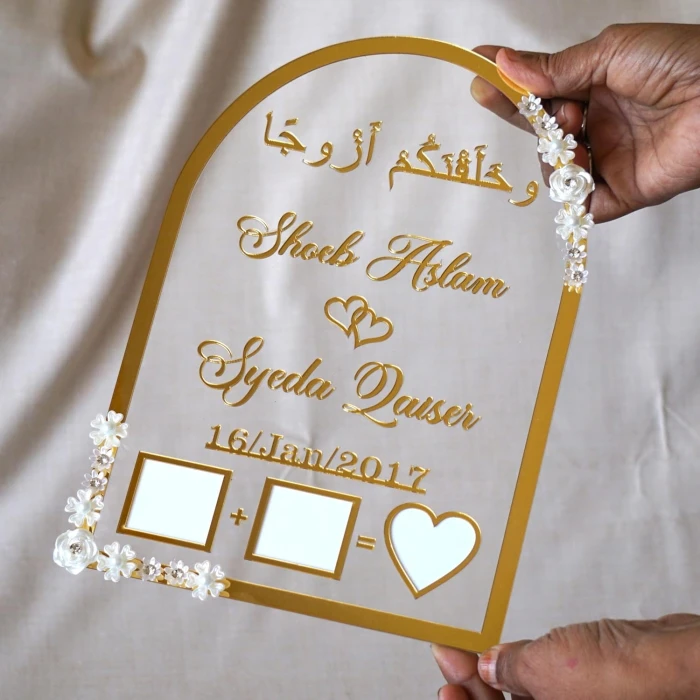 وَخَلَقْنَٰكُمْ أَزْوَٰجًا
Shoeb Aslam
Syeda Qaiser
16/Jan/2017
+ =